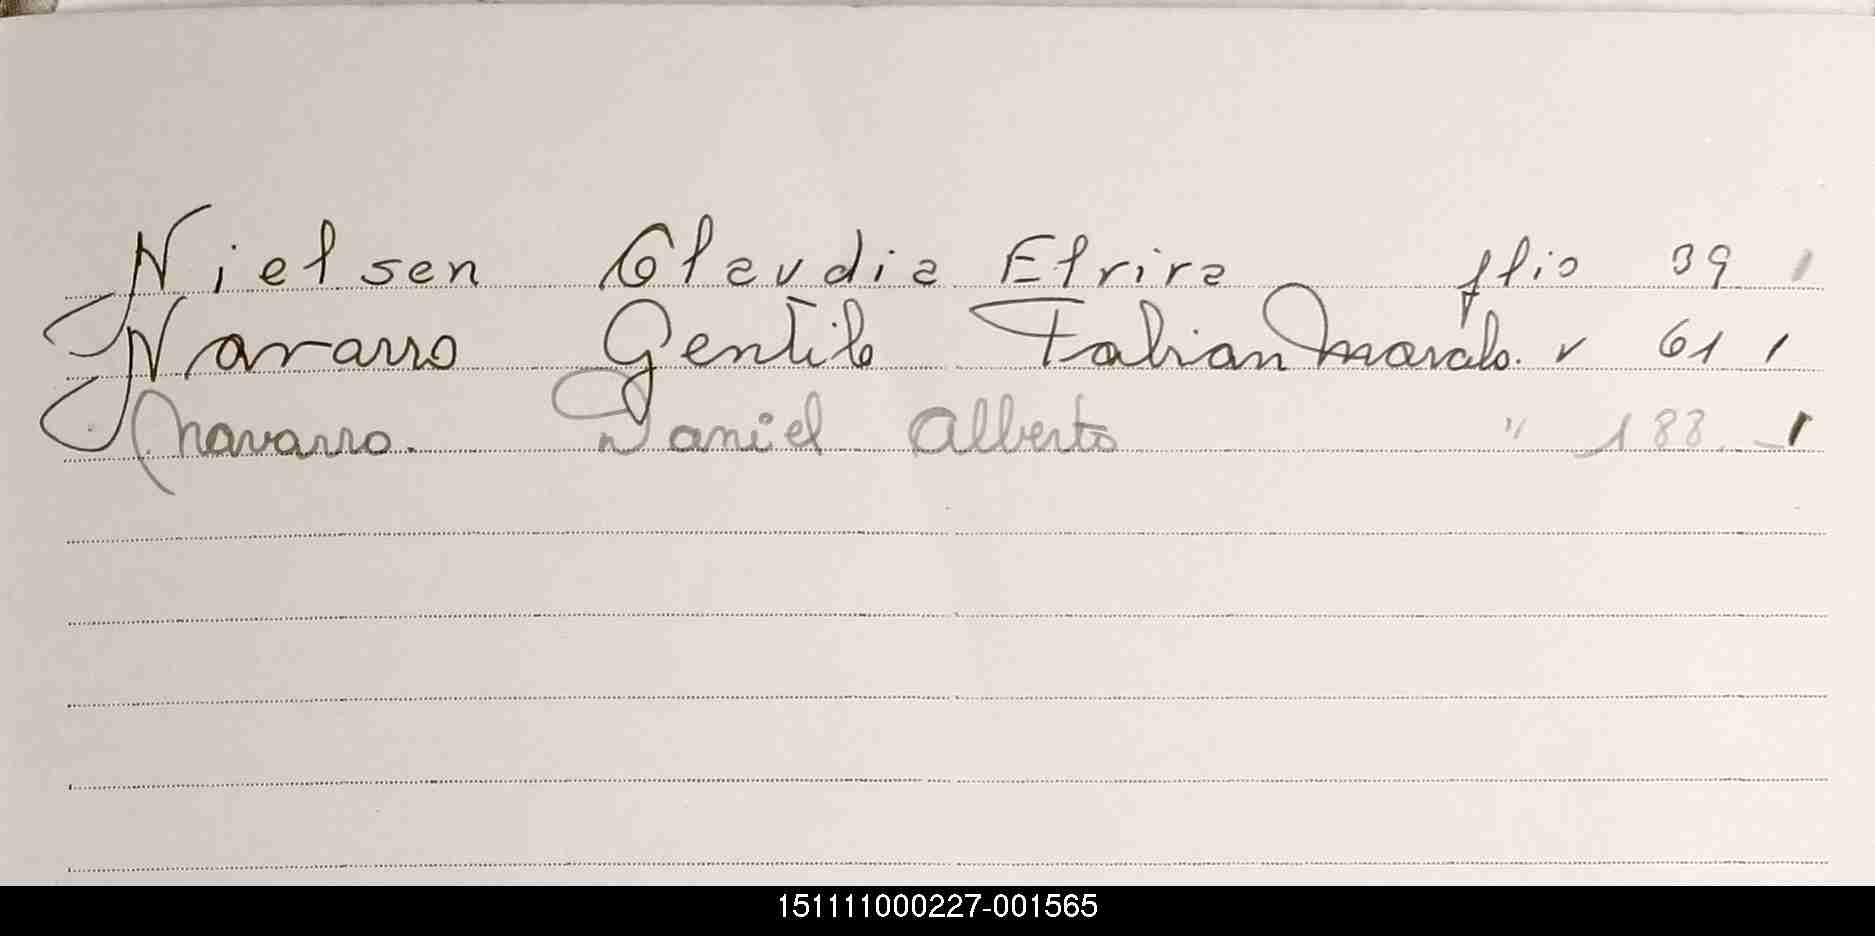 Nielsen Claudia Elvira flio 39
Navarro Gentile Fabian Marcelo. " 61
Navarro. Daniel Alberto " 188.
151111000227-001565